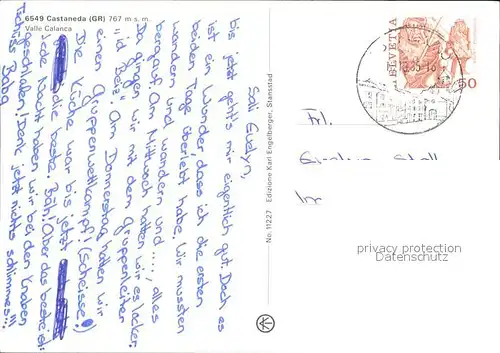 6549 Castaneda (GR) 767 m s. m.
Valle Calanca
Sali Evelyn,
bis jetzt geht's mir eigentlich gut. Doch es
ist ein Wunder, dass ich die ersten
beiden Tage überlebt habe. Wir mussten
wandern und wandern und ..., alles
bergauf. Am Mittwoch hatten wir es lacker.
Da gingen wir mit dem Gruppenleiter
"id Beiz". Am Donnerstag hatten wir
einen Gruppenwettkampf! (Scheisse!)
Die Küche war bis jetzt
die beste. Bäh! Aber das beste ist:
Jede Nacht haben wir bei den Knaben
geschlafen! Denk jetzt nichts schlimmes...!!!
Tschüss Baba
No. 11227 Edizione Karl Engelberger, Stansstad
HELVETIA
50
Frl.
privacy protection
Datenschutz